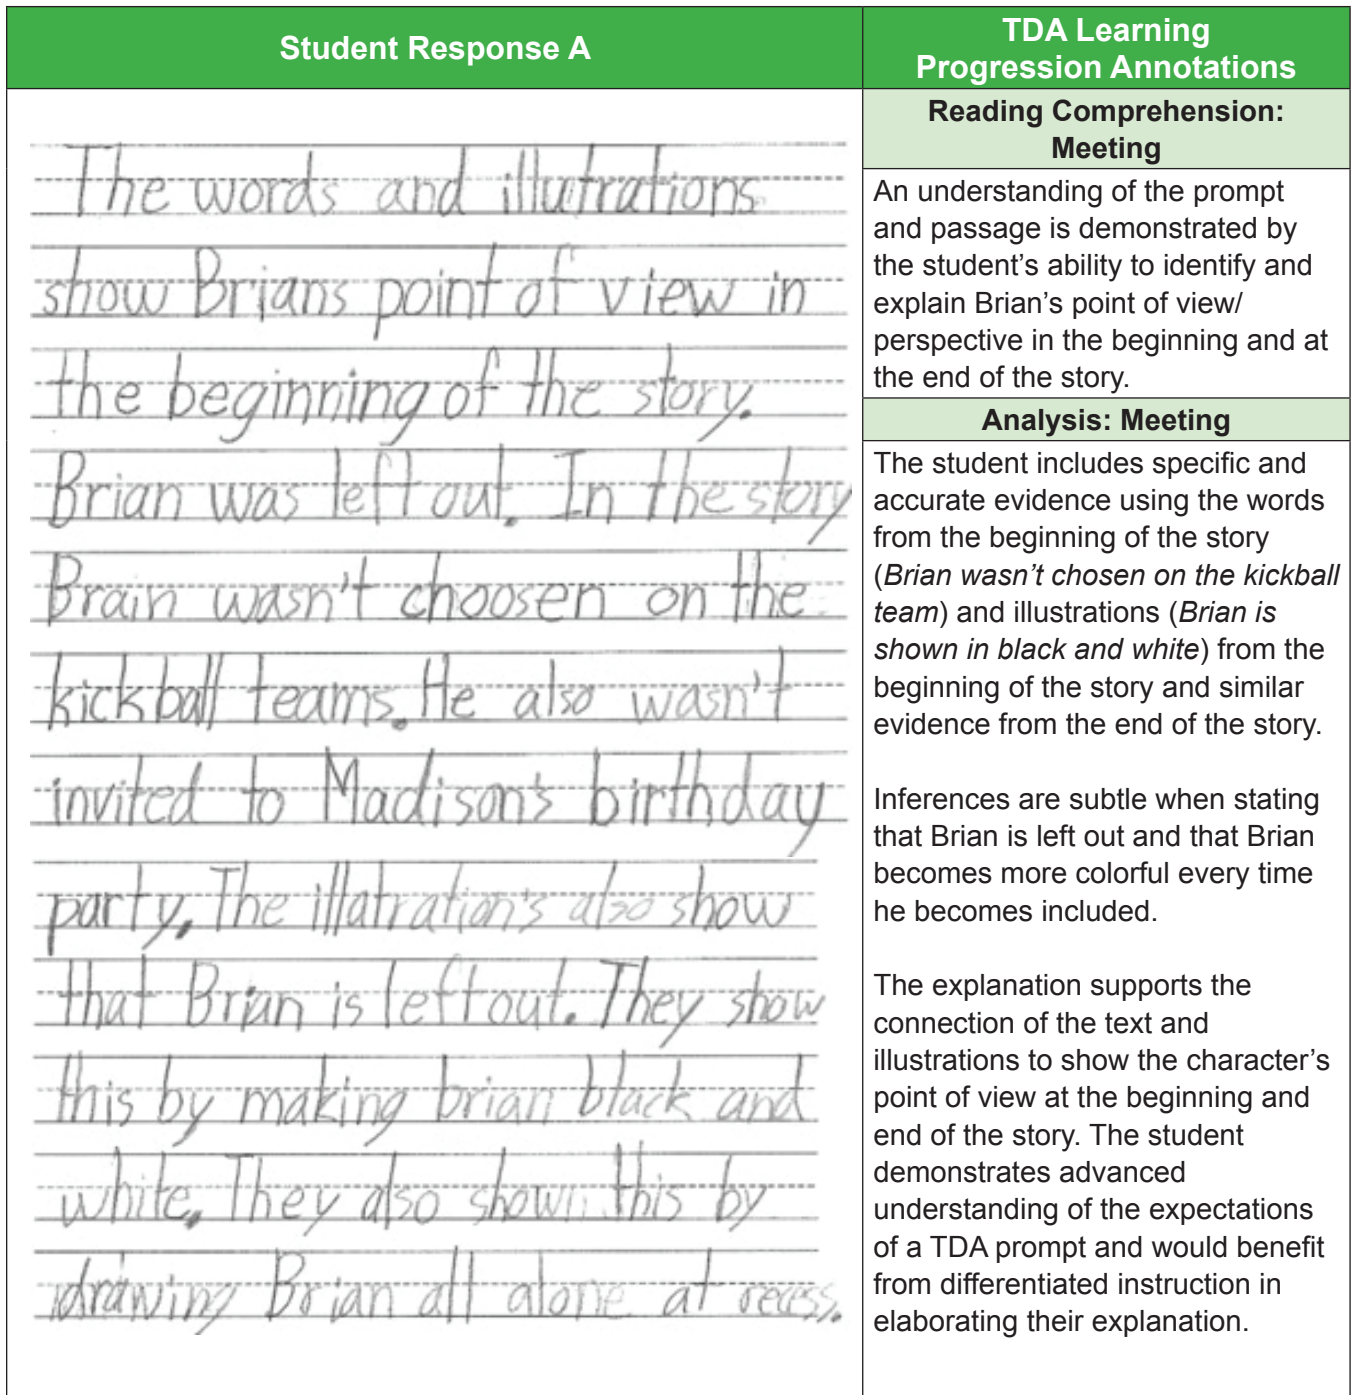 Student Response A
The words and illutrations
show Brians point of view in
the beginning of the story.
Brian was left out. In the story
Brain wasn't choosen on the
kickball teams. He also wasn't
invited to Madison's birthday
party. The illatration's also show
that Brian is left out. They show
this by making brian black and
white. They also shown this by
drawing Brian all alone at recess.
TDA Learning
Progression Annotations
Reading Comprehension:
Meeting
An understanding of the prompt
and passage is demonstrated by
the student’s ability to identify and
explain Brian’s point of view/
perspective in the beginning and at
the end of the story.
Analysis: Meeting
The student includes specific and
accurate evidence using the words
from the beginning of the story
(Brian wasn’t chosen on the kickball
team) and illustrations (Brian is
shown in black and white) from the
beginning of the story and similar
evidence from the end of the story.
Inferences are subtle when stating
that Brian is left out and that Brian
becomes more colorful every time
he becomes included.
The explanation supports the
connection of the text and
illustrations to show the character’s
point of view at the beginning and
end of the story. The student
demonstrates advanced
understanding of the expectations
of a TDA prompt and would benefit
from differentiated instruction in
elaborating their explanation.